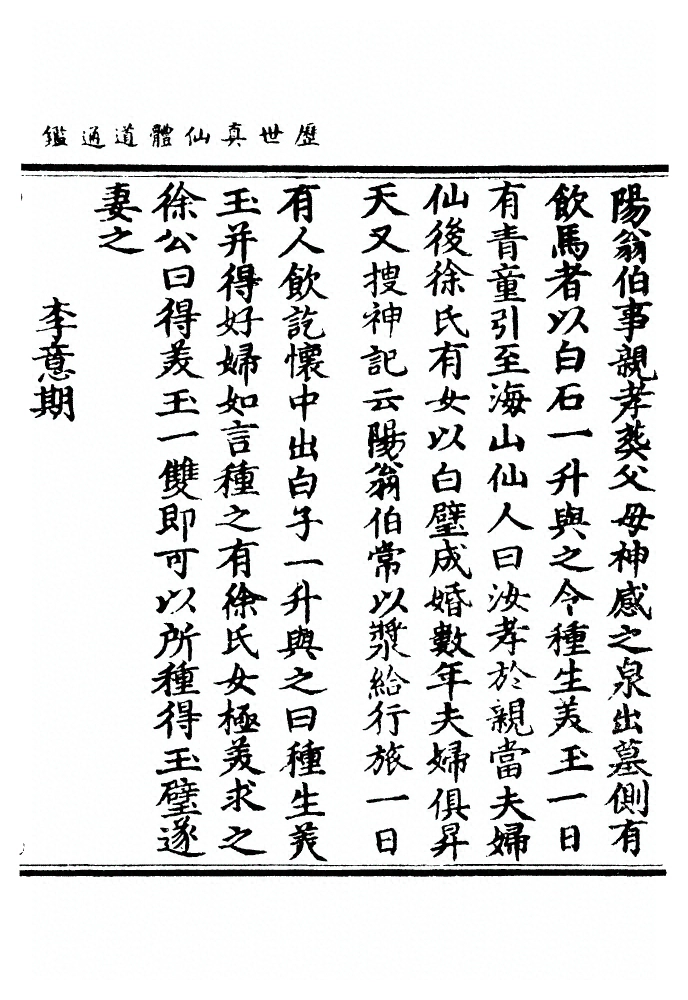 歷世真仙體道通鑑
陽翁伯事親孝葬父母神感之泉出墓側有
飲馬者以白石一升與之令種生美玉一日
有青童引至海山仙人曰汝孝於親當夫婦
仙後徐氏有女以白璧成婚數年夫婦俱昇
天又搜神記云陽翁伯常以漿給行旅一日
有人飲訖懷中出白子一升與之曰種生美
玉并得好婦如言種之有徐氏女極美求之
徐公曰得美玉一雙即可以所種得玉璧遂
妻之
李意期